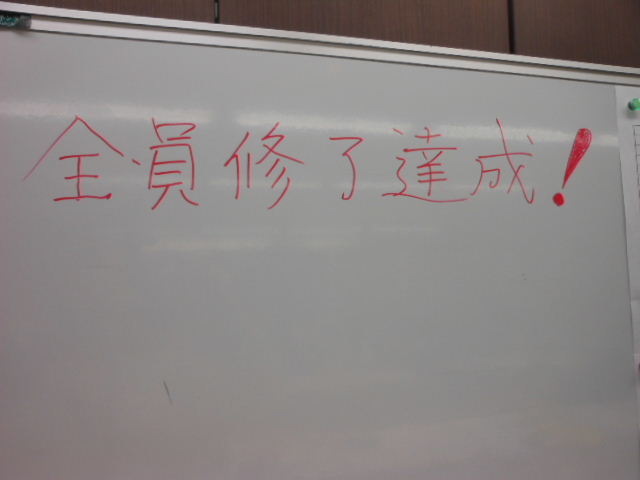 全員修了達成!